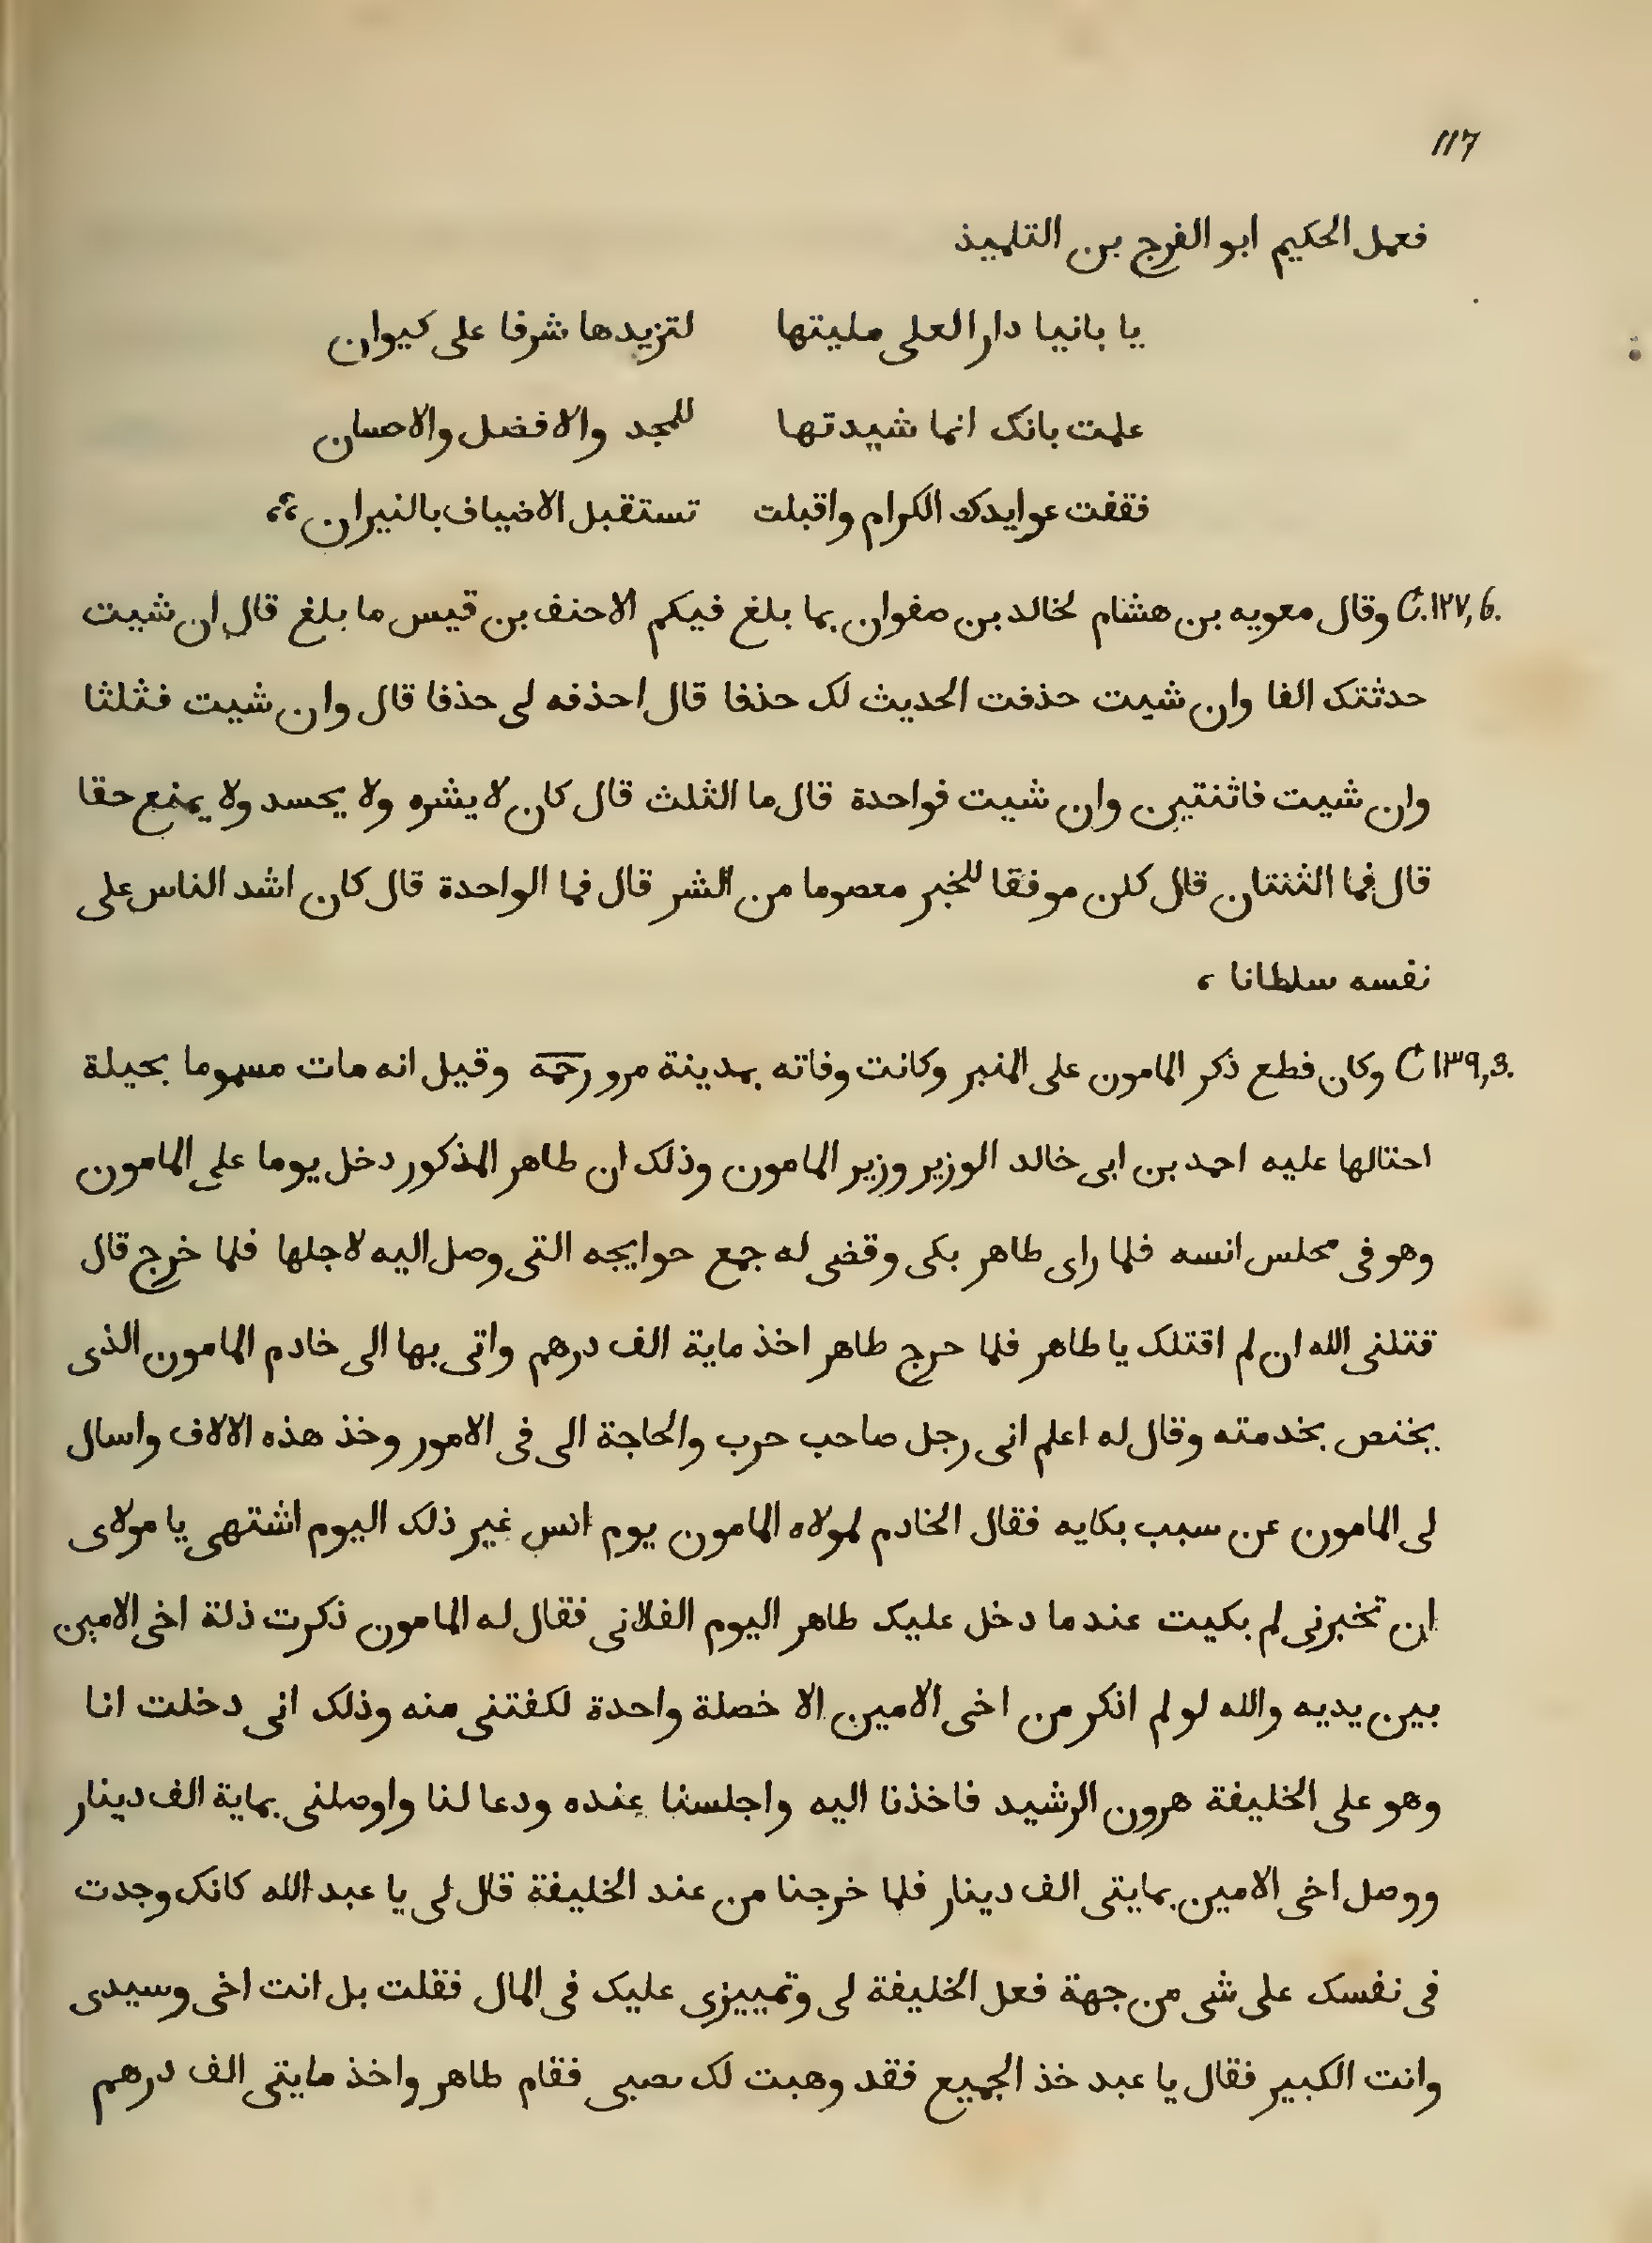 117
فعمل الحكيم ابو الفرج بن التلميذ
يا بانيا دار العلى مليتها لتزيدها شرفا على كيوان
علمت بانك انما شيدتها للمجد والافضل والاحسان
فقفت عوايدك الكرام واقبلت تستقبل الاضياف بالنيران ،،
C.۱۲۷, 6. وقال معويه بن هشام لخالد بن صفوان بما بلغ فيكم الاحنف بن قيس ما بلغ قال ان شيت
حدثتك الفا وان شيت حذفت الحديث لك حذفا قال احذفه لى حذفا قال وان شيت فثلثا
وان شيت فاثنتين وان شيت فواحدة قال ما الثلث قال كان لا يشره ولا يحسد ولا يمنع حقا
قال فما الثنتان قال كان موفقا للخير معصوما من الشر قال فما الواحدة قال كان اشد الناس على
نفسه سلطانا ،
C ۱۳۹, 3. وكان قطع ذكر المامون على المنبر وكانت وفاته بمدينة مرو رحمه وقيل انه مات مسموما بحيلة
احتالها عليه احمد بن ابى خالد الوزير وزير المامون وذلك ان طاهر المذكور دخل يوما على المامون
وهو فى مجلس انسه فلما راى طاهر بكى وقضى له جمع حوايجه التى وصل اليه لاجلها فلما خرج قال
قتلنى الله ان لم اقتلك يا طاهر فلما حرج طاهر اخذ ماية الف درهم واتى بها الى خادم المامون الذى
يختص بخدمته وقال له اعلم انى رجل صاحب حرب والحاجة الى فى الامور وخذ هذه الالاف واسال
لى المامون عن سبب بكايه فقال الخادم لمولاه المامون يوم انس غير ذلك اليوم اشتهى يا مولاى
ان تخبرنى لم بكيت عند ما دخل عليك طاهر اليوم الفلانى فقال له المامون ذكرت ذلة اخى الامين
بين يديه والله لو لم انكر من اخى الامين الا خصلة واحدة لكفتنى منه وذلك انى دخلت انا
وهو على الخليفة هرون الرشيد فاخذنا اليه واجلسنا عنده ودعا لنا واوصلنى بماية الف دينار
ووصل اخى الامين بمايتى الف دينار فلما خرجنا من عند الخليفة قال لى يا عبد الله كانك وجدت
فى نفسك على شى من جهة فعل الخليفة لى وتمييزى عليك فى المال فقلت بل انت اخى وسيدى
وانت الكبير فقال يا عبد خذ الجميع فقد وهبت لك نصبى فقام طاهر واخذ مايتى الف درهم